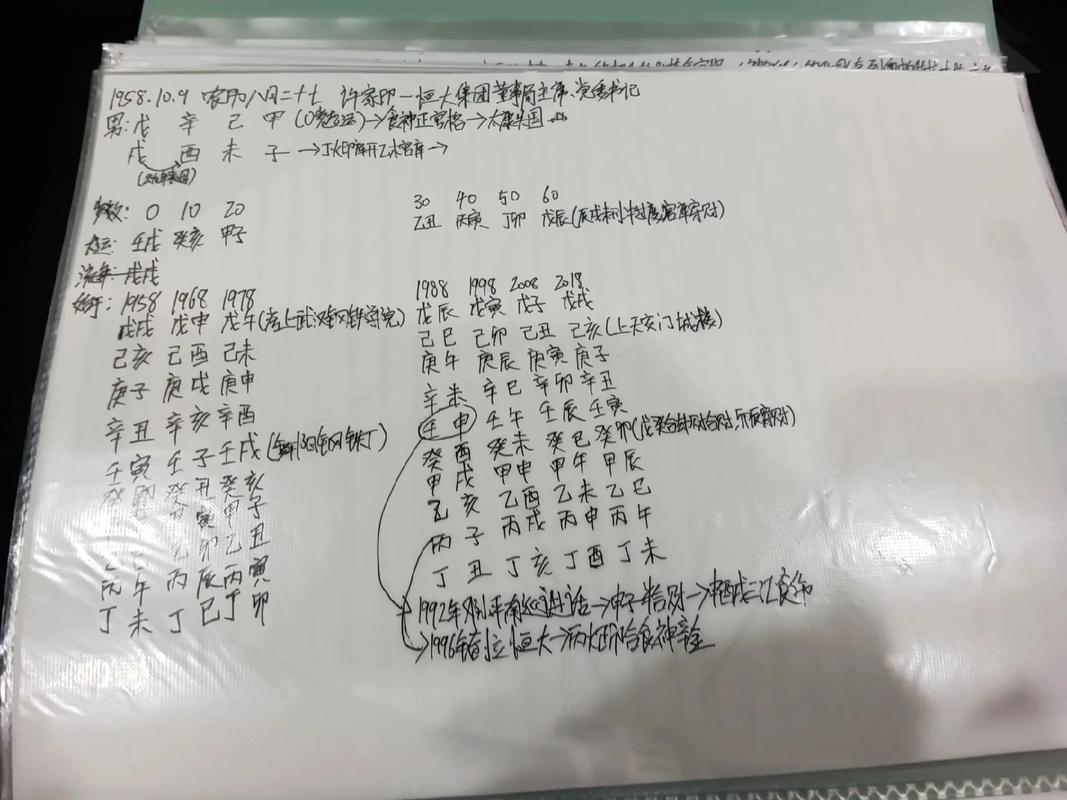 1958.10.9 农历八月二十七 许家印一恒大集团董事局主席、党委书记
男:戊 辛 己 甲 (0岁起运)→食神正官格→太康
戌 酉 未 子 →丁火印库开乙木官库→
岁数: 0 10 20
大运: 壬戌 癸亥 甲子
流年: 戊戌
始于: 1958 1968 1978
戊戌 戊申 戊午(考上武汉钢铁学院)
己亥 己酉 己未
庚子 庚戌 庚申
辛丑 辛亥 辛酉
壬寅 壬子 壬戌(舞钢
癸卯 癸丑 癸亥
寅 甲子
乙卯 乙丑
丙午 丙辰 丙寅
丁未 丁巳 丁卯
30 40 50 60
乙丑 丙寅 丁卯 戊辰
1988 1998 2008 2018
戊辰 戊寅 戊子 戊戌
己巳 己卯 己丑 己亥(上天安门城楼)
庚午 庚辰 庚寅 庚子
辛未 辛巳 辛卯 辛丑
壬申 壬午 壬辰 壬寅
癸酉 癸未 癸巳 癸卯
甲戌 甲申 甲午 甲辰
乙亥 乙酉 乙未 乙巳
丙子 丙戌 丙申 丙午
丁丑 丁亥 丁酉 丁未
1992年邓小平南巡讲话→申子半合财→申酉戌三汇食伤
→1996年创立恒大→丙火印合食神辛金